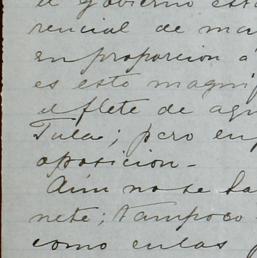 el gobierno est
rencial de ma
en proporcion a
es esto magni
el flete de agu
Tula; pero en
oposicion-
Aún no se ha
nete; tampoco
como en las